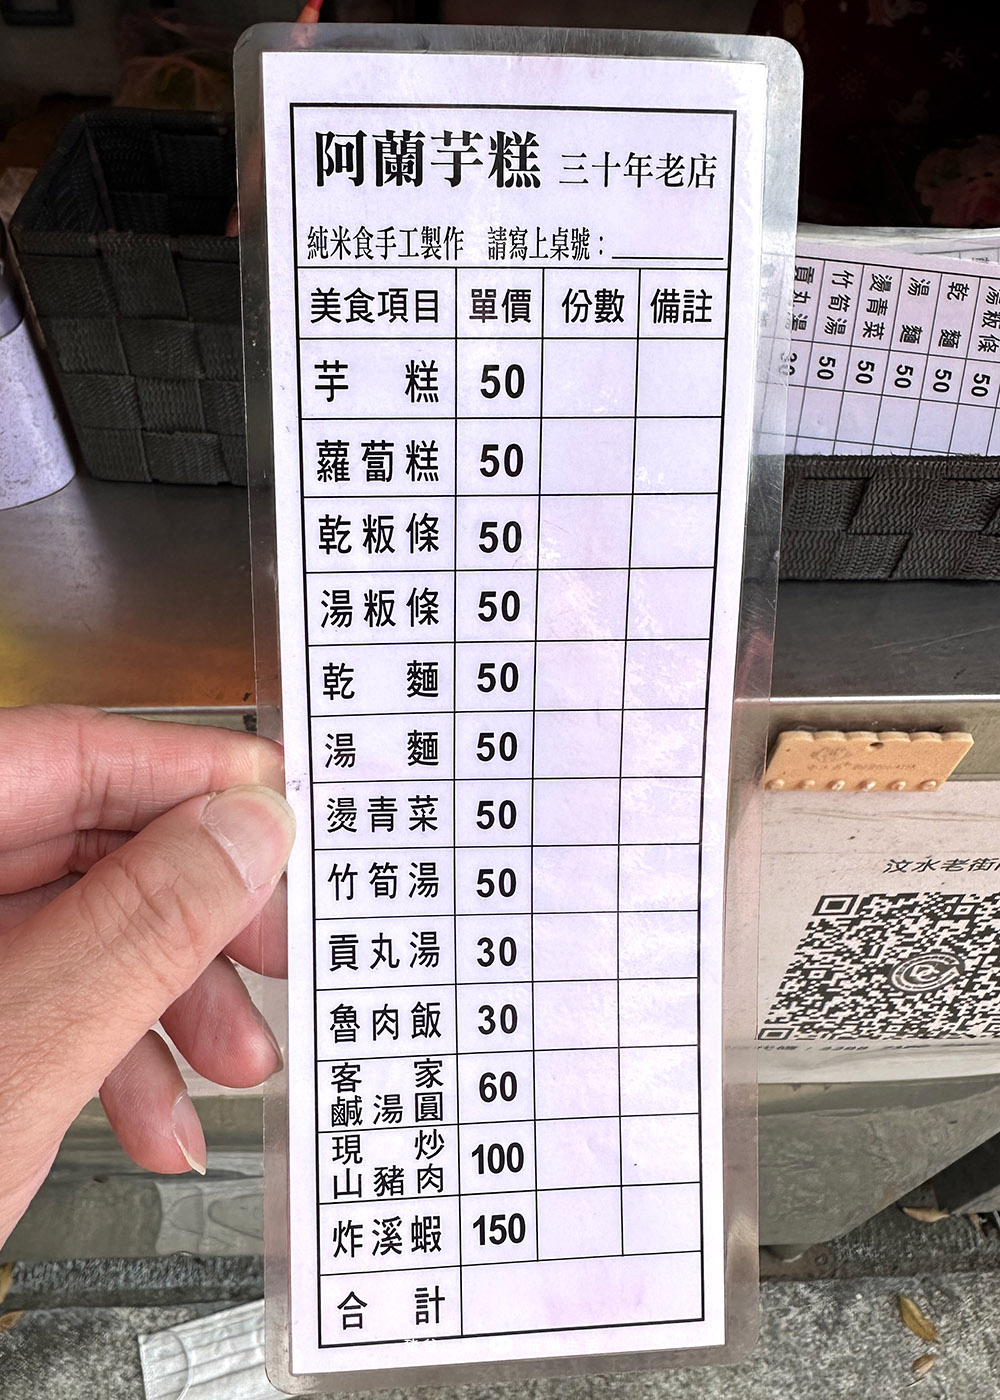 阿蘭芋糕 三十年老店
純米食手工製作 請寫上桌號：
美食項目 單價 份數 備註
芋糕 50
蘿蔔糕 50
乾粄條 50
湯粄條 50
乾麵 50
湯麵 50
燙青菜 50
竹筍湯 50
貢丸湯 30
魯肉飯 30
客家鹹湯圓 60
現炒山豬肉 100
炸溪蝦 150
合計
湯粄條 50
乾麵 50
湯麵 50
燙青菜 50
竹筍湯 50
貢丸湯 30
汶水老街